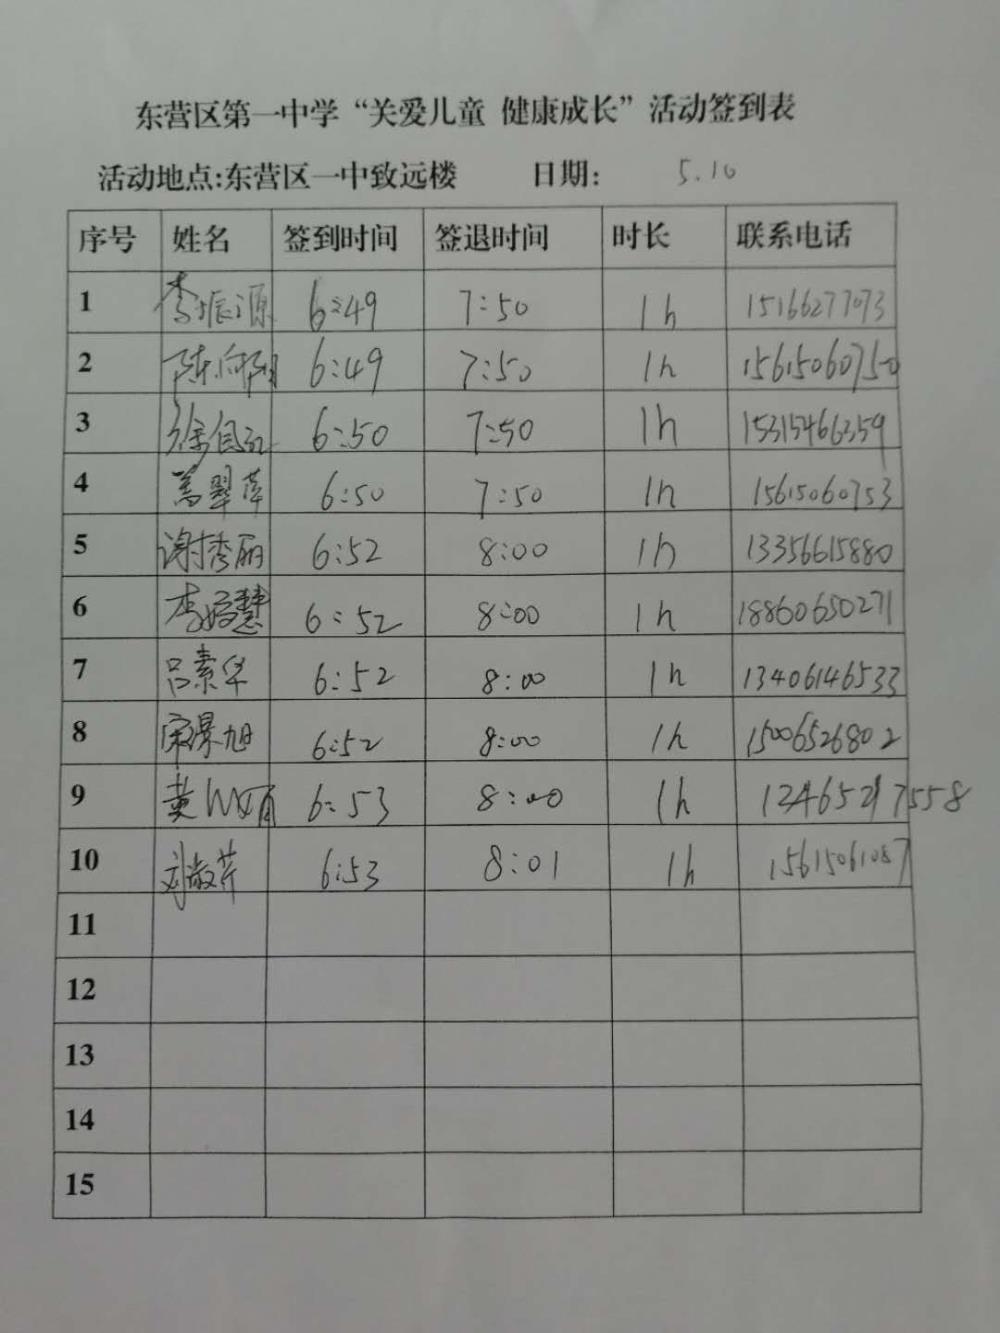 东营区第一中学“关爱儿童 健康成长”活动签到表
活动地点:东营区一中致远楼 日期: 5.10
序号 姓名 签到时间 签退时间 时长 联系电话
1 李振源 6:49 7:50 1h 15166277073
2 陈向阳 6:49 7:50 1h 15615060750
3 6:50 7:50 1h 15315466359
4 翠萍 6:50 7:50 1h 15615060753
5 谢秀丽 6:52 8:00 1h 13356615880
6 李婷慧 6:52 8:00 1h 18860650271
7 吕素华 6:52 8:00 1h 13406146533
8 旭 6:52 8:00 1h 15006526802
9 黄 6:53 8:00 1h
10 刘敬芹 6:53 8:01 1h 15615061087
11
12
13
14
15